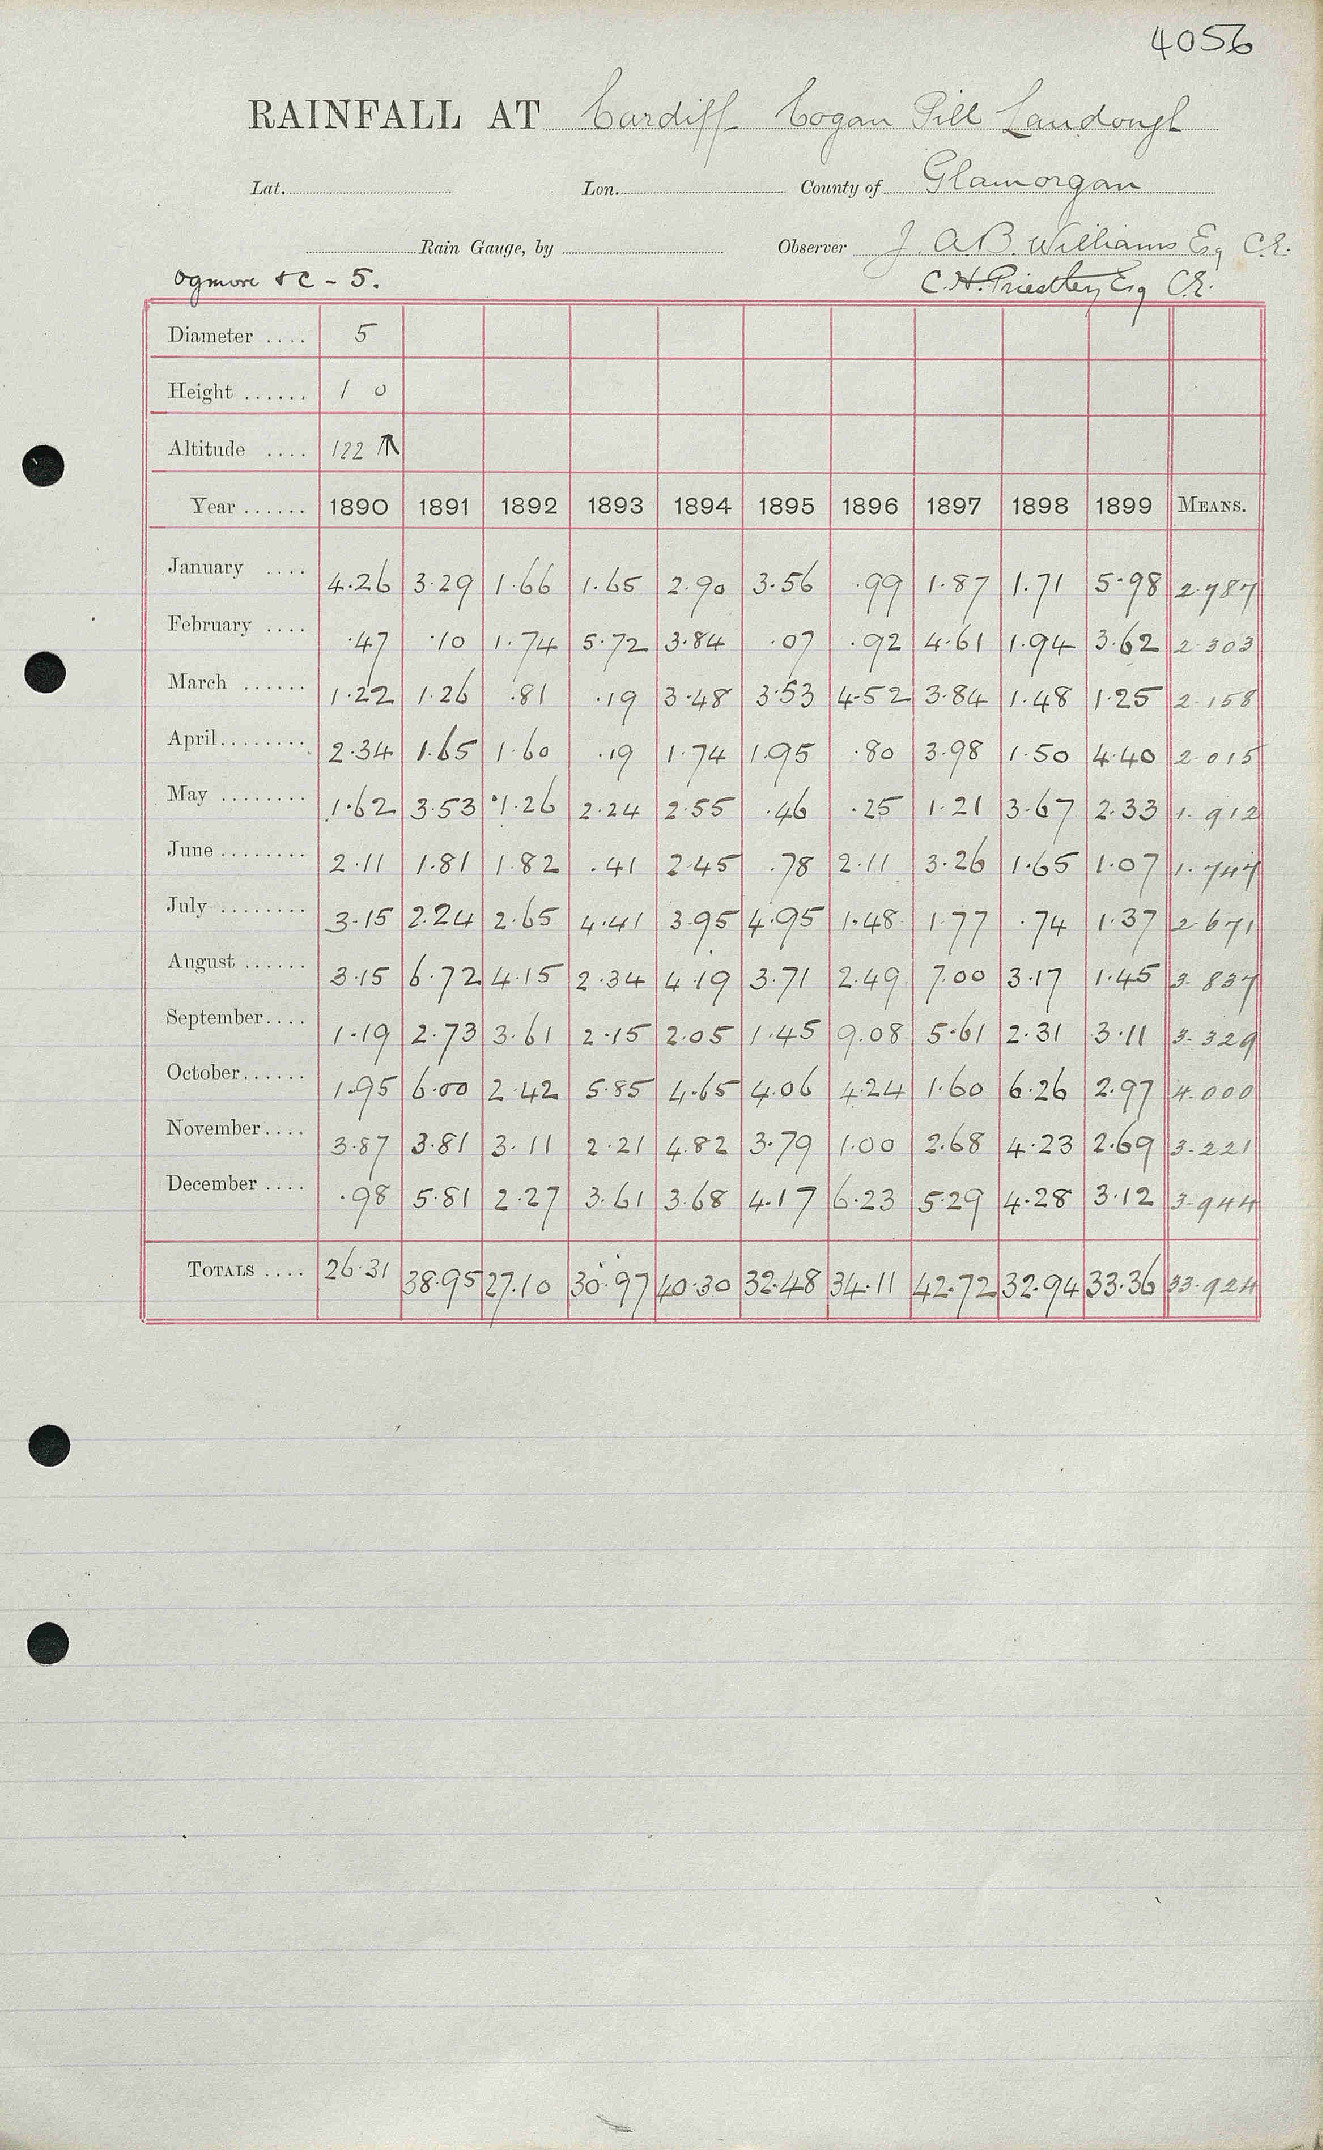 4056
RAINFALL AT Cardiff Cogan Pill Landough
Lat. Lon. County of Glamorgan
Rain Gauge, by Observer J. A. B. Williams Esq C.E.
Ogmore &C - 5. C. H. Priestley Esq C.E.
Diameter .... 5
Height ...... 1 0
Altitude .... 122 ↑
Year ...... 1890 1891 1892 1893 1894 1895 1896 1897 1898 1899 MEANS.
January .... 4.26 3.29 1.66 1.65 2.90 3.56 .99 1.87 1.71 5.98 2.787
February .... .47 .10 1.74 5.72 3.84 .07 .92 4.61 1.94 3.62 2.303
March ...... 1.22 1.26 .81 .19 3.48 3.53 4.52 3.84 1.48 1.25 2.158
April........ 2.34 1.65 1.60 .19 1.74 1.95 .80 3.98 1.50 4.40 2.015
May ........ 1.62 3.53 1.26 2.24 2.55 .46 .25 1.21 3.67 2.33 1.912
June ........ 2.11 1.81 1.82 .41 2.45 .78 2.11 3.26 1.65 1.07 1.747
July ........ 3.15 2.24 2.65 4.41 3.95 4.95 1.48 1.77 .74 1.37 2.671
August ...... 3.15 6.72 4.15 2.34 4.19 3.71 2.49 7.00 3.17 1.45 3.837
September.... 1.19 2.73 3.61 2.15 2.05 1.45 9.08 5.61 2.31 3.11 3.329
October...... 1.95 6.00 2.42 5.85 4.65 4.06 4.24 1.60 6.26 2.97 4.000
November.... 3.87 3.81 3.11 2.21 4.82 3.79 1.00 2.68 4.23 2.69 3.221
December .... .98 5.81 2.27 3.61 3.68 4.17 6.23 5.29 4.28 3.12 3.944
TOTALS .... 26.31 38.95 27.10 30.97 40.30 32.48 34.11 42.72 32.94 33.36 33.924